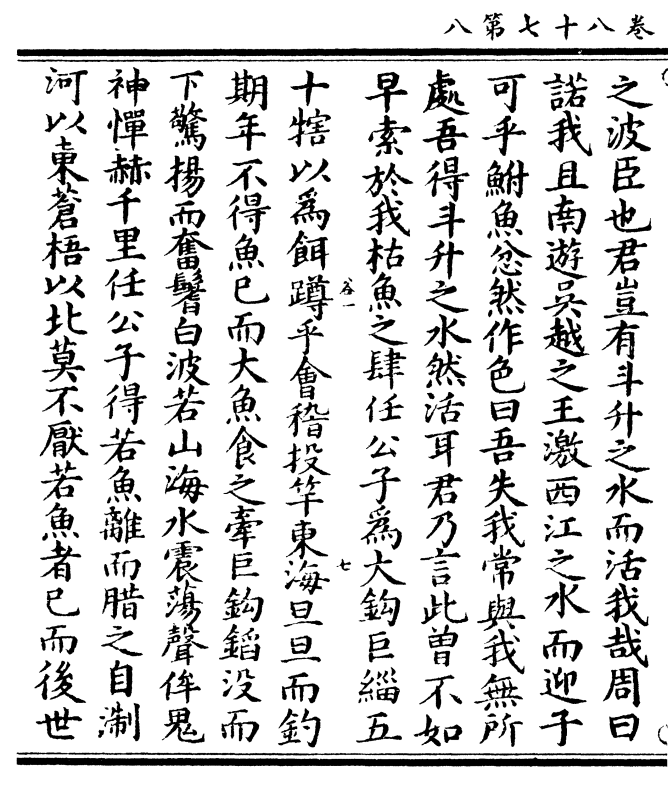 卷八十七第八
之波臣也君豈有斗升之水而活我哉周曰
諾我且南遊吳越之王激西江之水而迎子
可乎鮒魚忿然作色曰吾失我常與我無所
處吾得斗升之水然活耳君乃言此曾不如
早索於我枯魚之肆任公子爲大鈎巨緇五
谷一
七
十犗以爲餌蹲乎會稽投竿東海旦旦而釣
期年不得魚已而大魚食之牽巨鈎錎没而
下驚揚而奮鬐白波若山海水震蕩聲侔鬼
神憚赫千里任公子得若魚離而腊之自淛
河以東蒼梧以北莫不厭若魚者已而後世